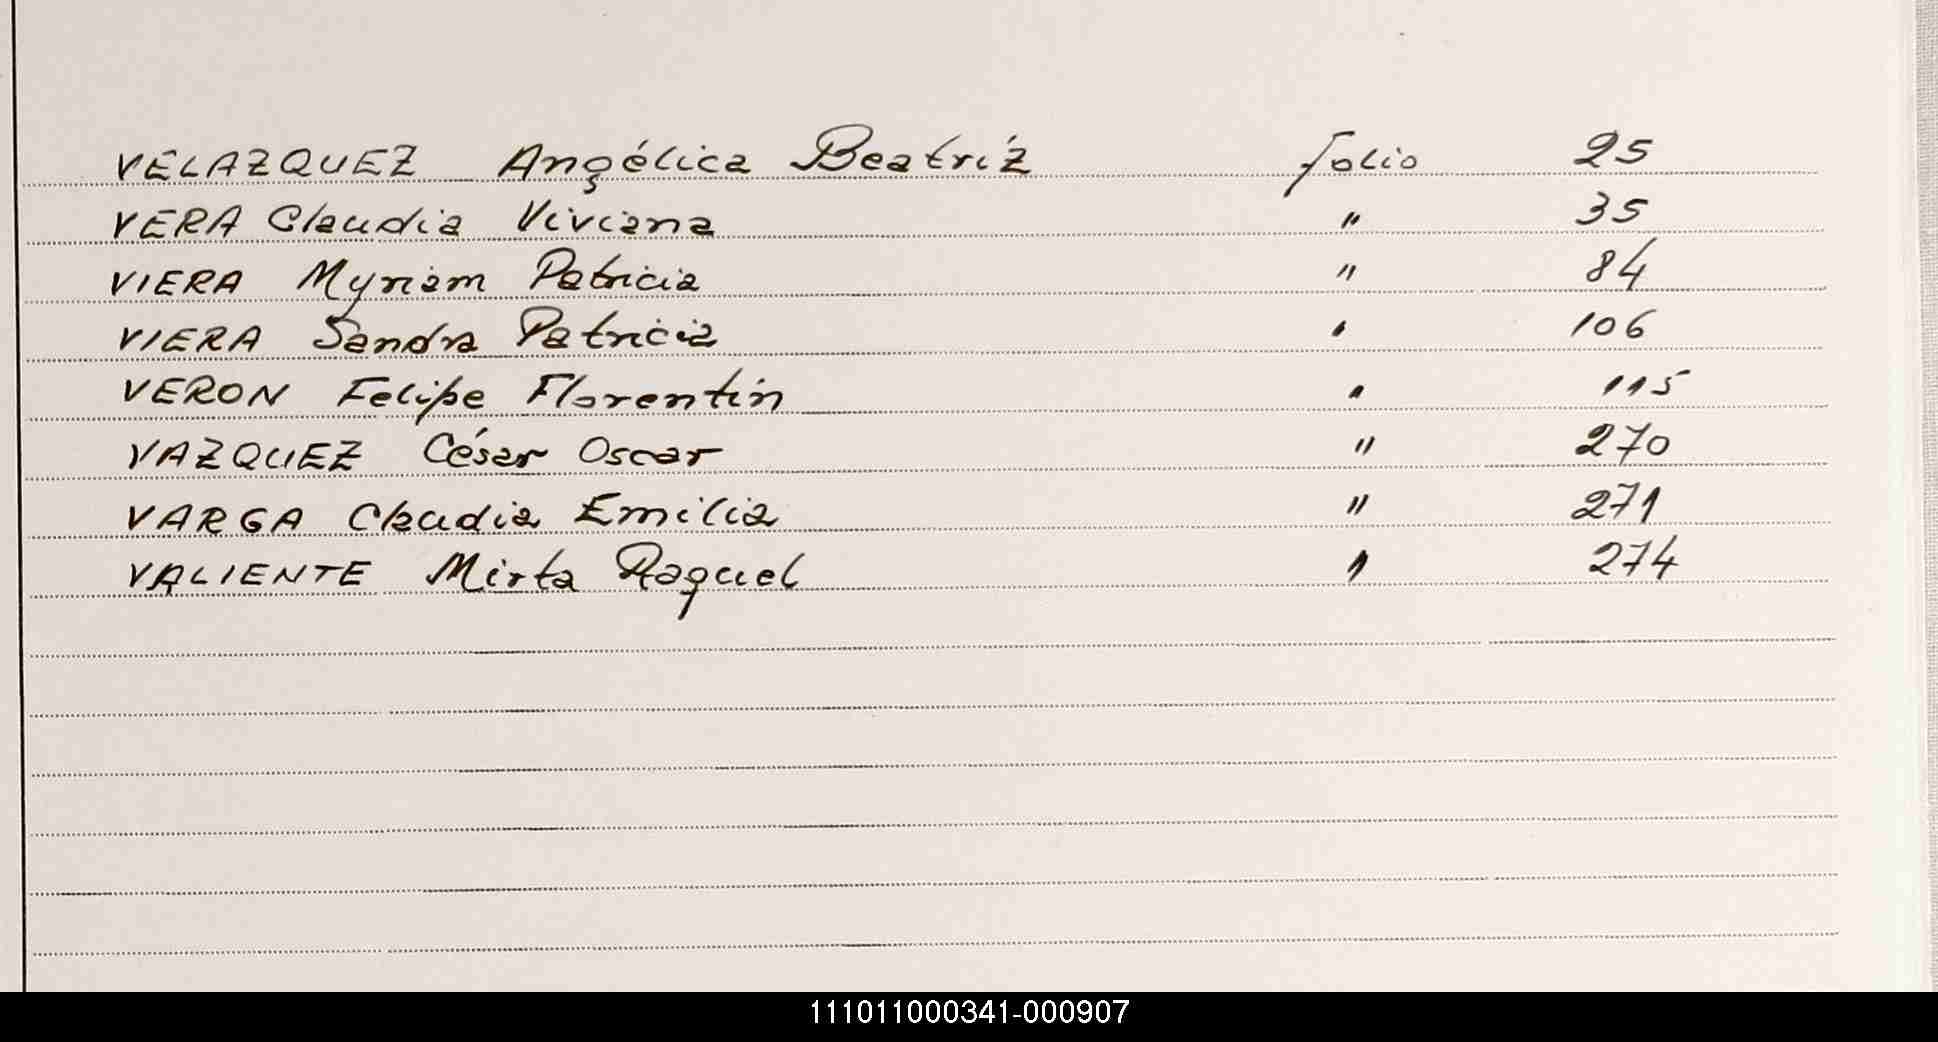 VELAZQUEZ Angélica Beatríz folio 25
VERA Claudia Viviana " 35
VIERA Myriam Patricia " 84
VIERA Sandra Patricia ' 106
VERON Felipe Florentín ' 115
VAZQUEZ César Oscar " 270
VARGA Claudia Emilia " 271
VALIENTE Mirta Raquel ' 274
111011000341-000907